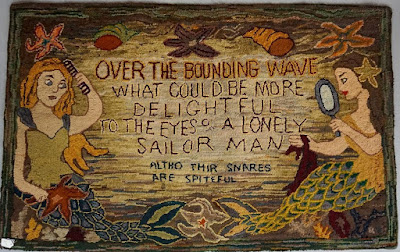 OVER THE BOUNDING WAVE
WHAT COULD BE MORE
DELIGHTFUL
TO THE EYES OF A LONELY
SAILOR MAN
ALTHO THIR SNARES
ARE SPITEFUL